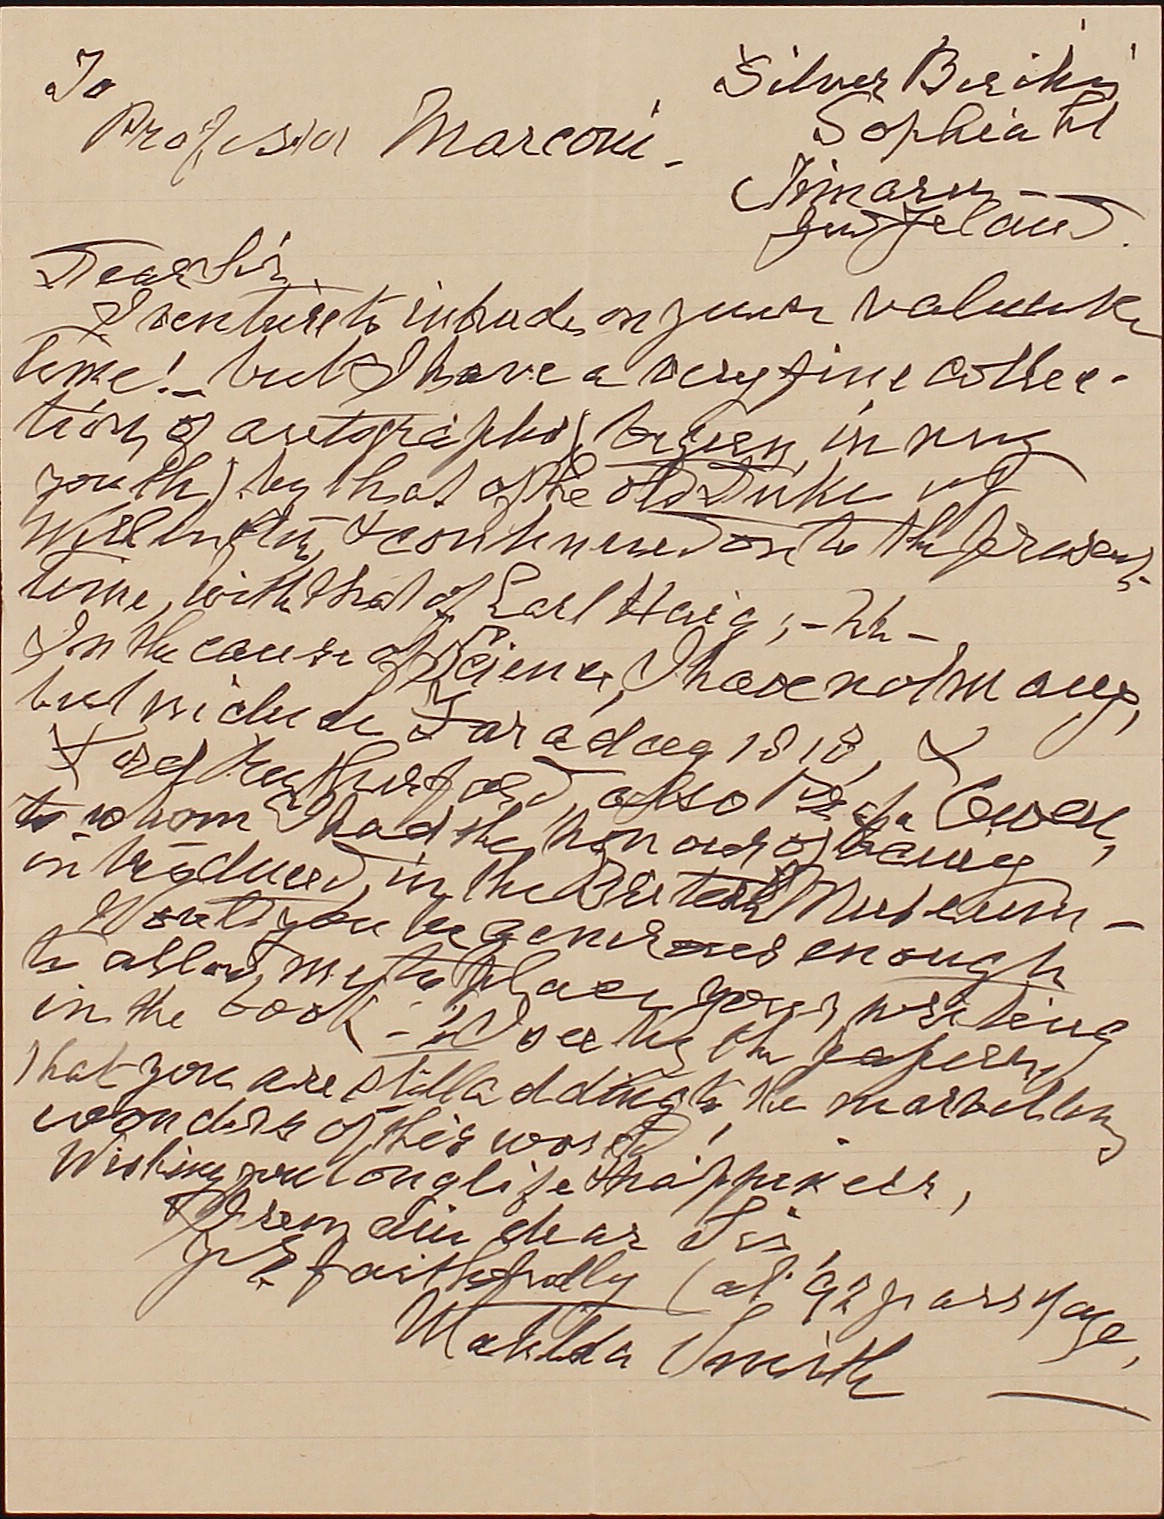 To
Professor Marconi -
Silver Birches
Sophia St
Timaru -
New Zealand.
Dear Sir,
I venture to intrude on your valuable
time! - but I have a very fine collec-
tion of autographs (begun, in my
youth) by that of the old Duke of
Wellington, & continued on to the present
time, with that of Earl Haig; -
In the cause of Science, I have not many,
but include Faraday 1818, &
Lord Rutherford, also Owen,
to whom I had the honour of being
introduced, in the British Museum -
Would you be generous enough
to allow me to place your writing
in the book - I see by the papers,
that you are still adding to the marvellous
wonders of this world!
Wishing you long life & happiness,
I remain dear Sir,
yrs faithfully (at 92 years of age,
Matilda Smith